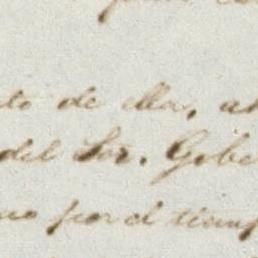 to de ella, a
del Sor. Gobe
no por el tiemp